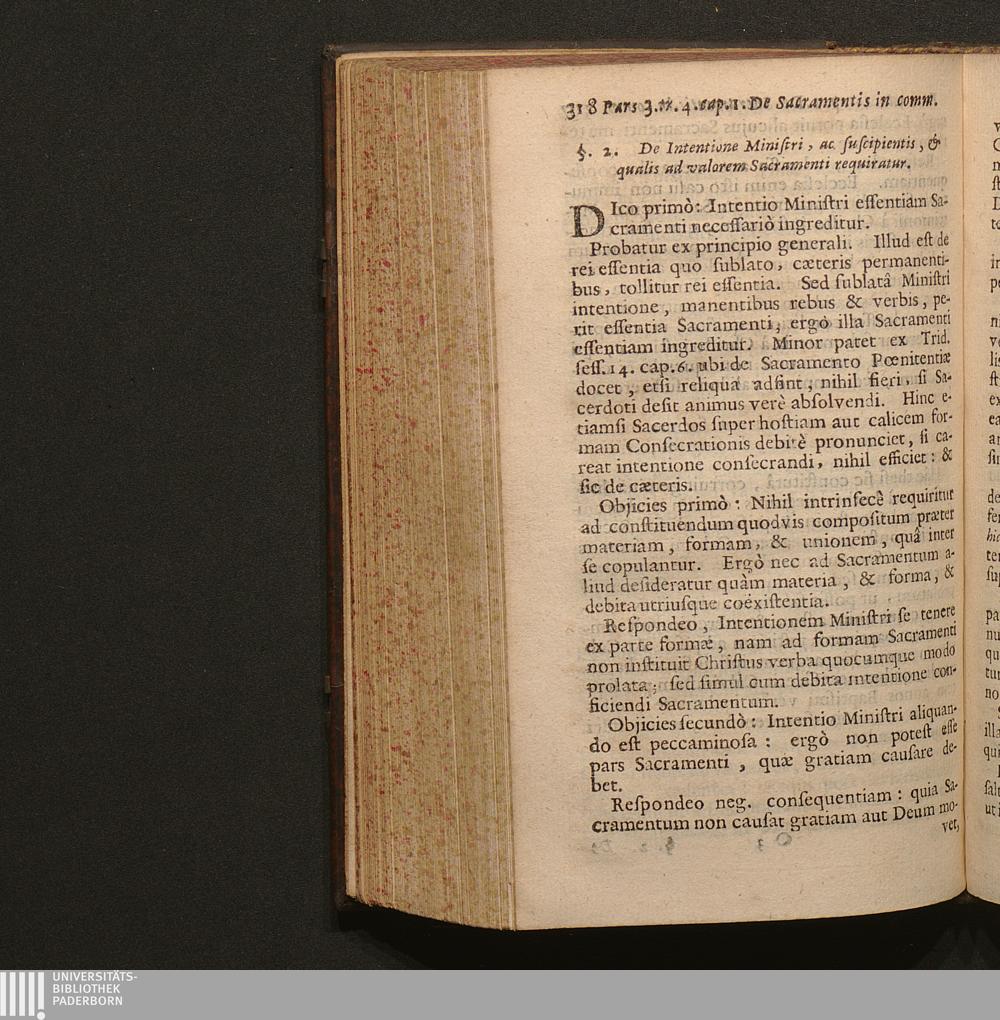 318 Pars 3. tr. 4. cap. 1. De Sacramentis in comm.
§. 2. De Intentione Miniſtri, ac ſuſcipientis, &
qualis ad valorem Sacramenti requiratur.
DIco primò: Intentio Miniſtri eſſentiam Sa-
cramenti neceſſariò ingreditur.
Probatur ex principio generali. Illud eſt de
rei eſſentia quo ſublato, cæteris permanenti-
bus, tollitur rei eſſentia. Sed ſublatâ Miniſtri
intentione, manentibus rebus & verbis, pe-
rit eſſentia Sacramenti, ergò illa Sacramenti
eſſentiam ingreditur. Minor patet ex Trid.
ſeſſ. 14. cap. 6. ubi de Sacramento Pœnitentiæ
docet, etſi reliqua adſint, nihil fieri, ſi Sa-
cerdoti deſit animus verè abſolvendi. Hinc e-
tiamſi Sacerdos ſuper hoſtiam aut calicem for-
mam Conſecrationis debitè pronunciet, ſi ca-
reat intentione conſecrandi, nihil efficiet: &
ſic de cæteris.
Objicies primò: Nihil intrinſecè requiritur
ad conſtituendum quodvis compoſitum præter
materiam, formam, & unionem, quâ inter
ſe copulantur. Ergò nec ad Sacramentum a-
liud deſideratur quàm materia, & forma, &
debita utriuſque coëxiſtentia.
Reſpondeo, Intentionem Miniſtri ſe tenere
ex parte formæ, nam ad formam Sacramenti
non inſtituit Chriſtus verba quocumque modo
prolata; ſed ſimul cum debita intentione con-
ficiendi Sacramentum.
Objicies ſecundò: Intentio Miniſtri aliquan-
do eſt peccaminoſa: ergò non poteſt eſſe
pars Sacramenti, quæ gratiam cauſare de-
bet.
Reſpondeo neg. conſequentiam: quia Sa-
cramentum non cauſat gratiam aut Deum mo-
vet,
UNIVERSITÄTS-
BIBLIOTHEK
PADERBORN